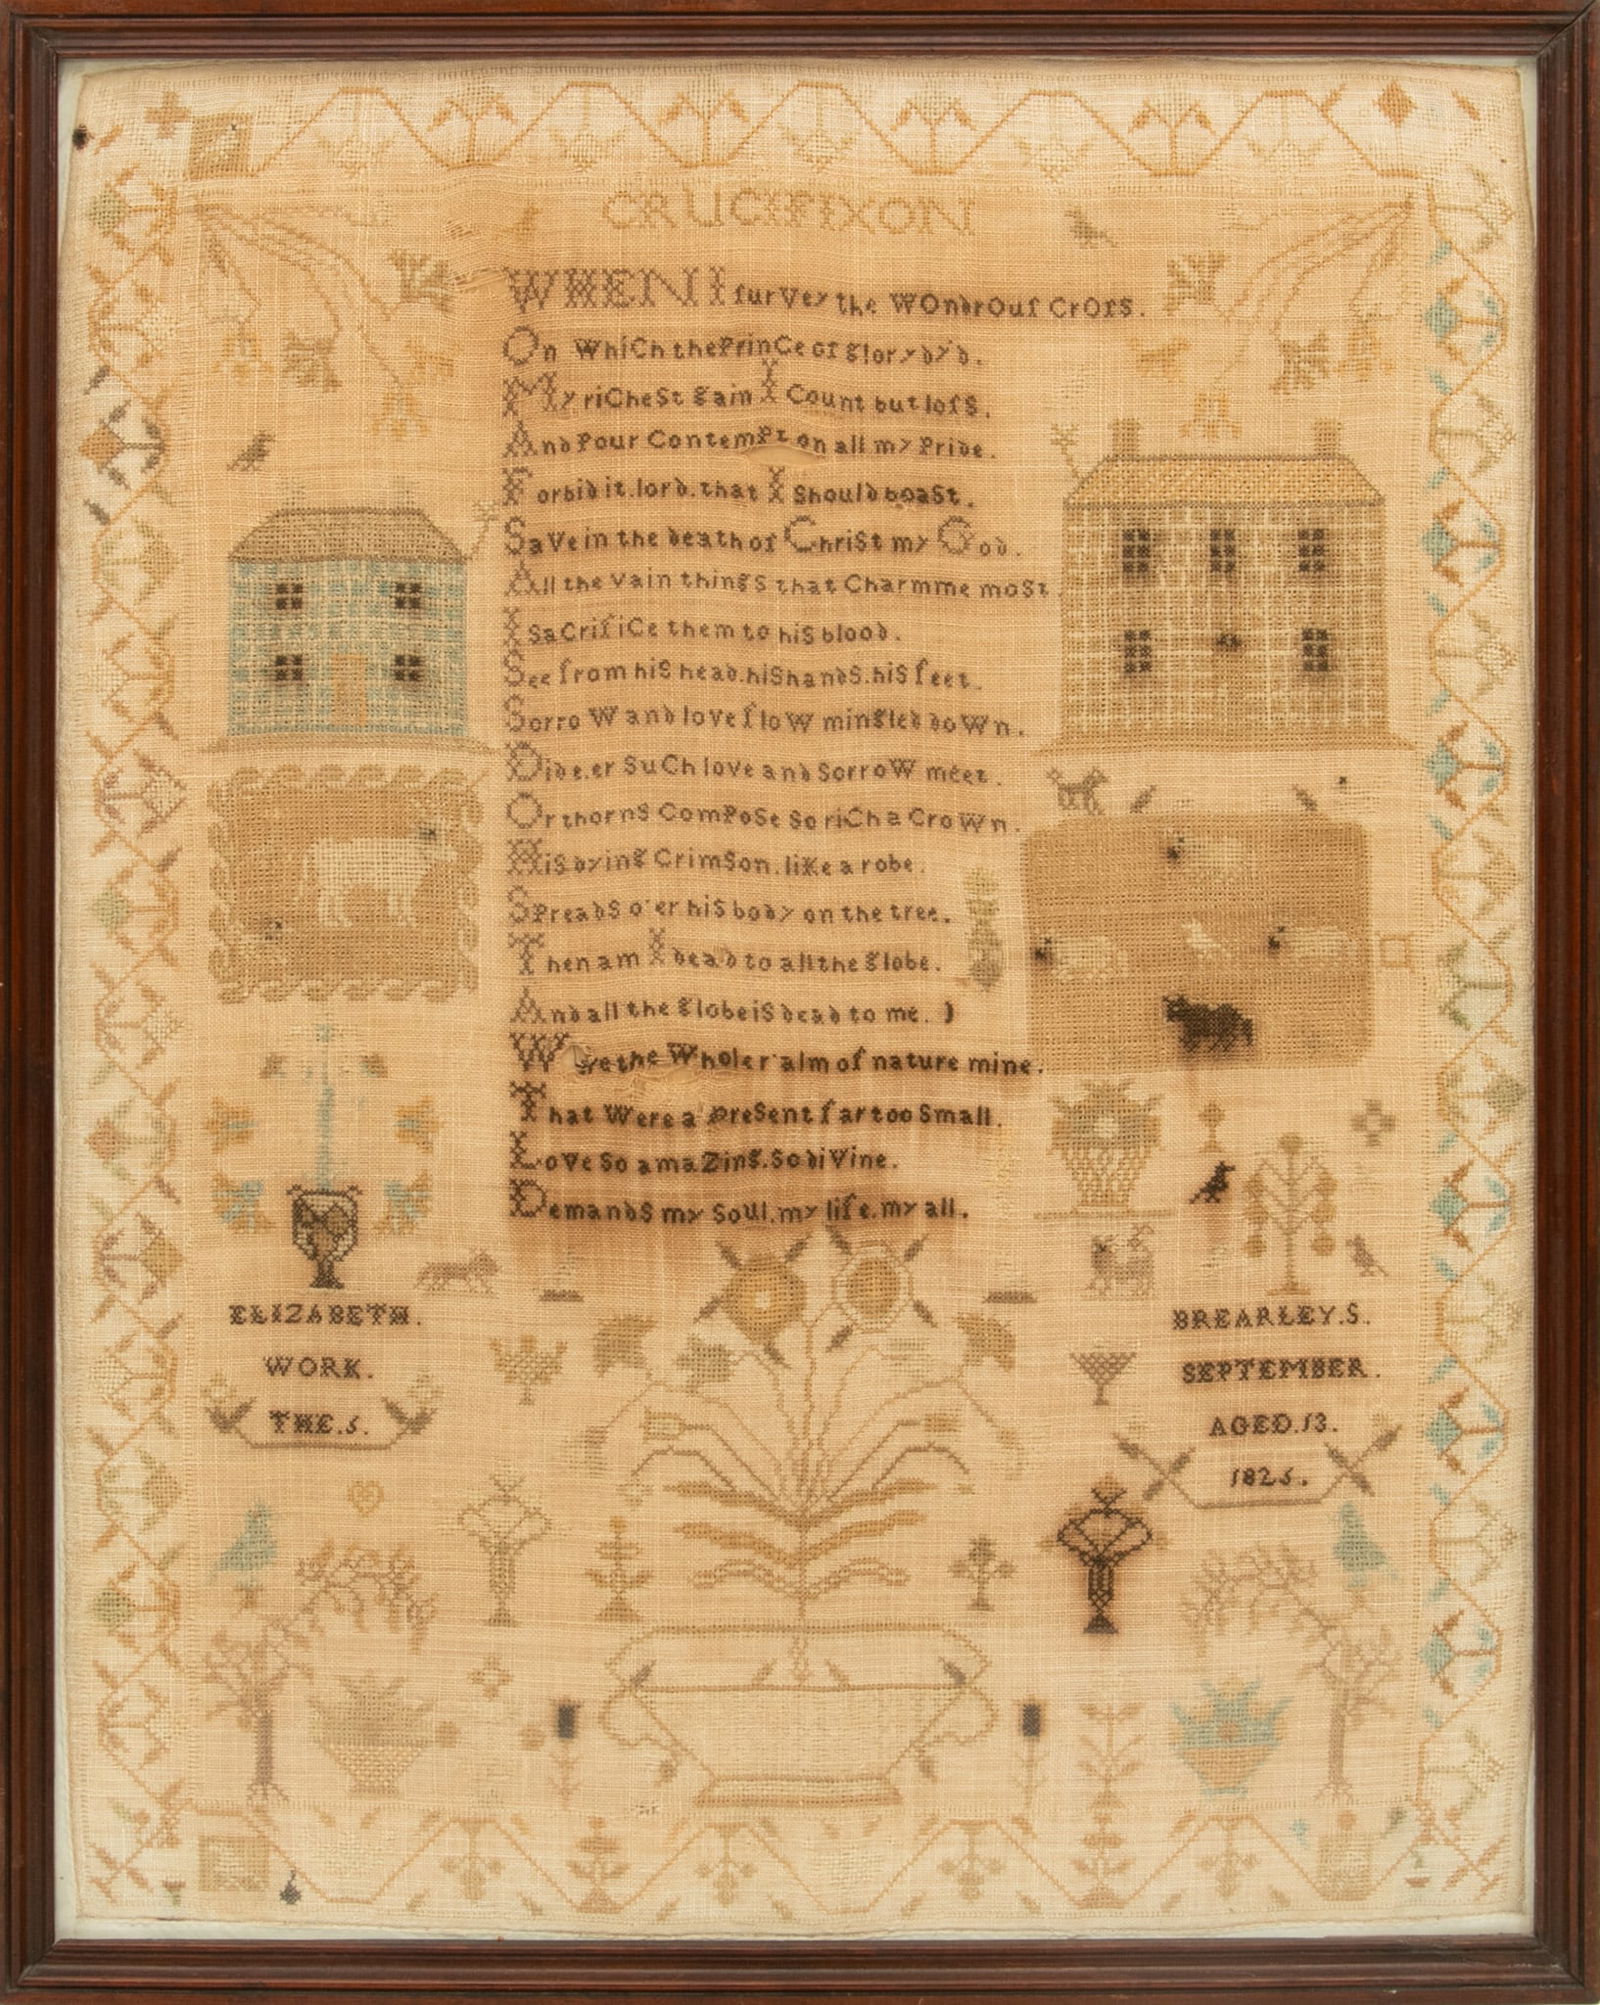 CRUCIFIXON
WHEN I ſurvey the Wondrouſ Croſs.
On Which the Prince of glory dy'd.
My richest gain I Count but loſs.
And Pour Contempt on all my Pride.
Forbid it.lord.that I Should boaSt.
Save in the death of ChriSt my God.
All the vain things that Charm me moSt.
I SaCrifiCe them to hiS blood.
See from hiS head.hiS handS.hiS feet.
SorroW and love flow mingled doWn.
Did e.er SuCh love and SorroW meet.
Or thornS ComPoSe So riCh a CroWn.
HiS dying CrimSon.like a robe.
SpreadS o'er hiS body on the tree.
Then am I dead to all the globe.
And all the globe iS dead to me. )
the Whole r'alm of nature mine.
That Were a PreSent far too Small.
Love So amaZing.So diVine.
DemandS my Soul.my life.my all.
ELIZABETH. BREARLEY.S.
WORK. SEPTEMBER.
THE.5. AGED.13.
1825.